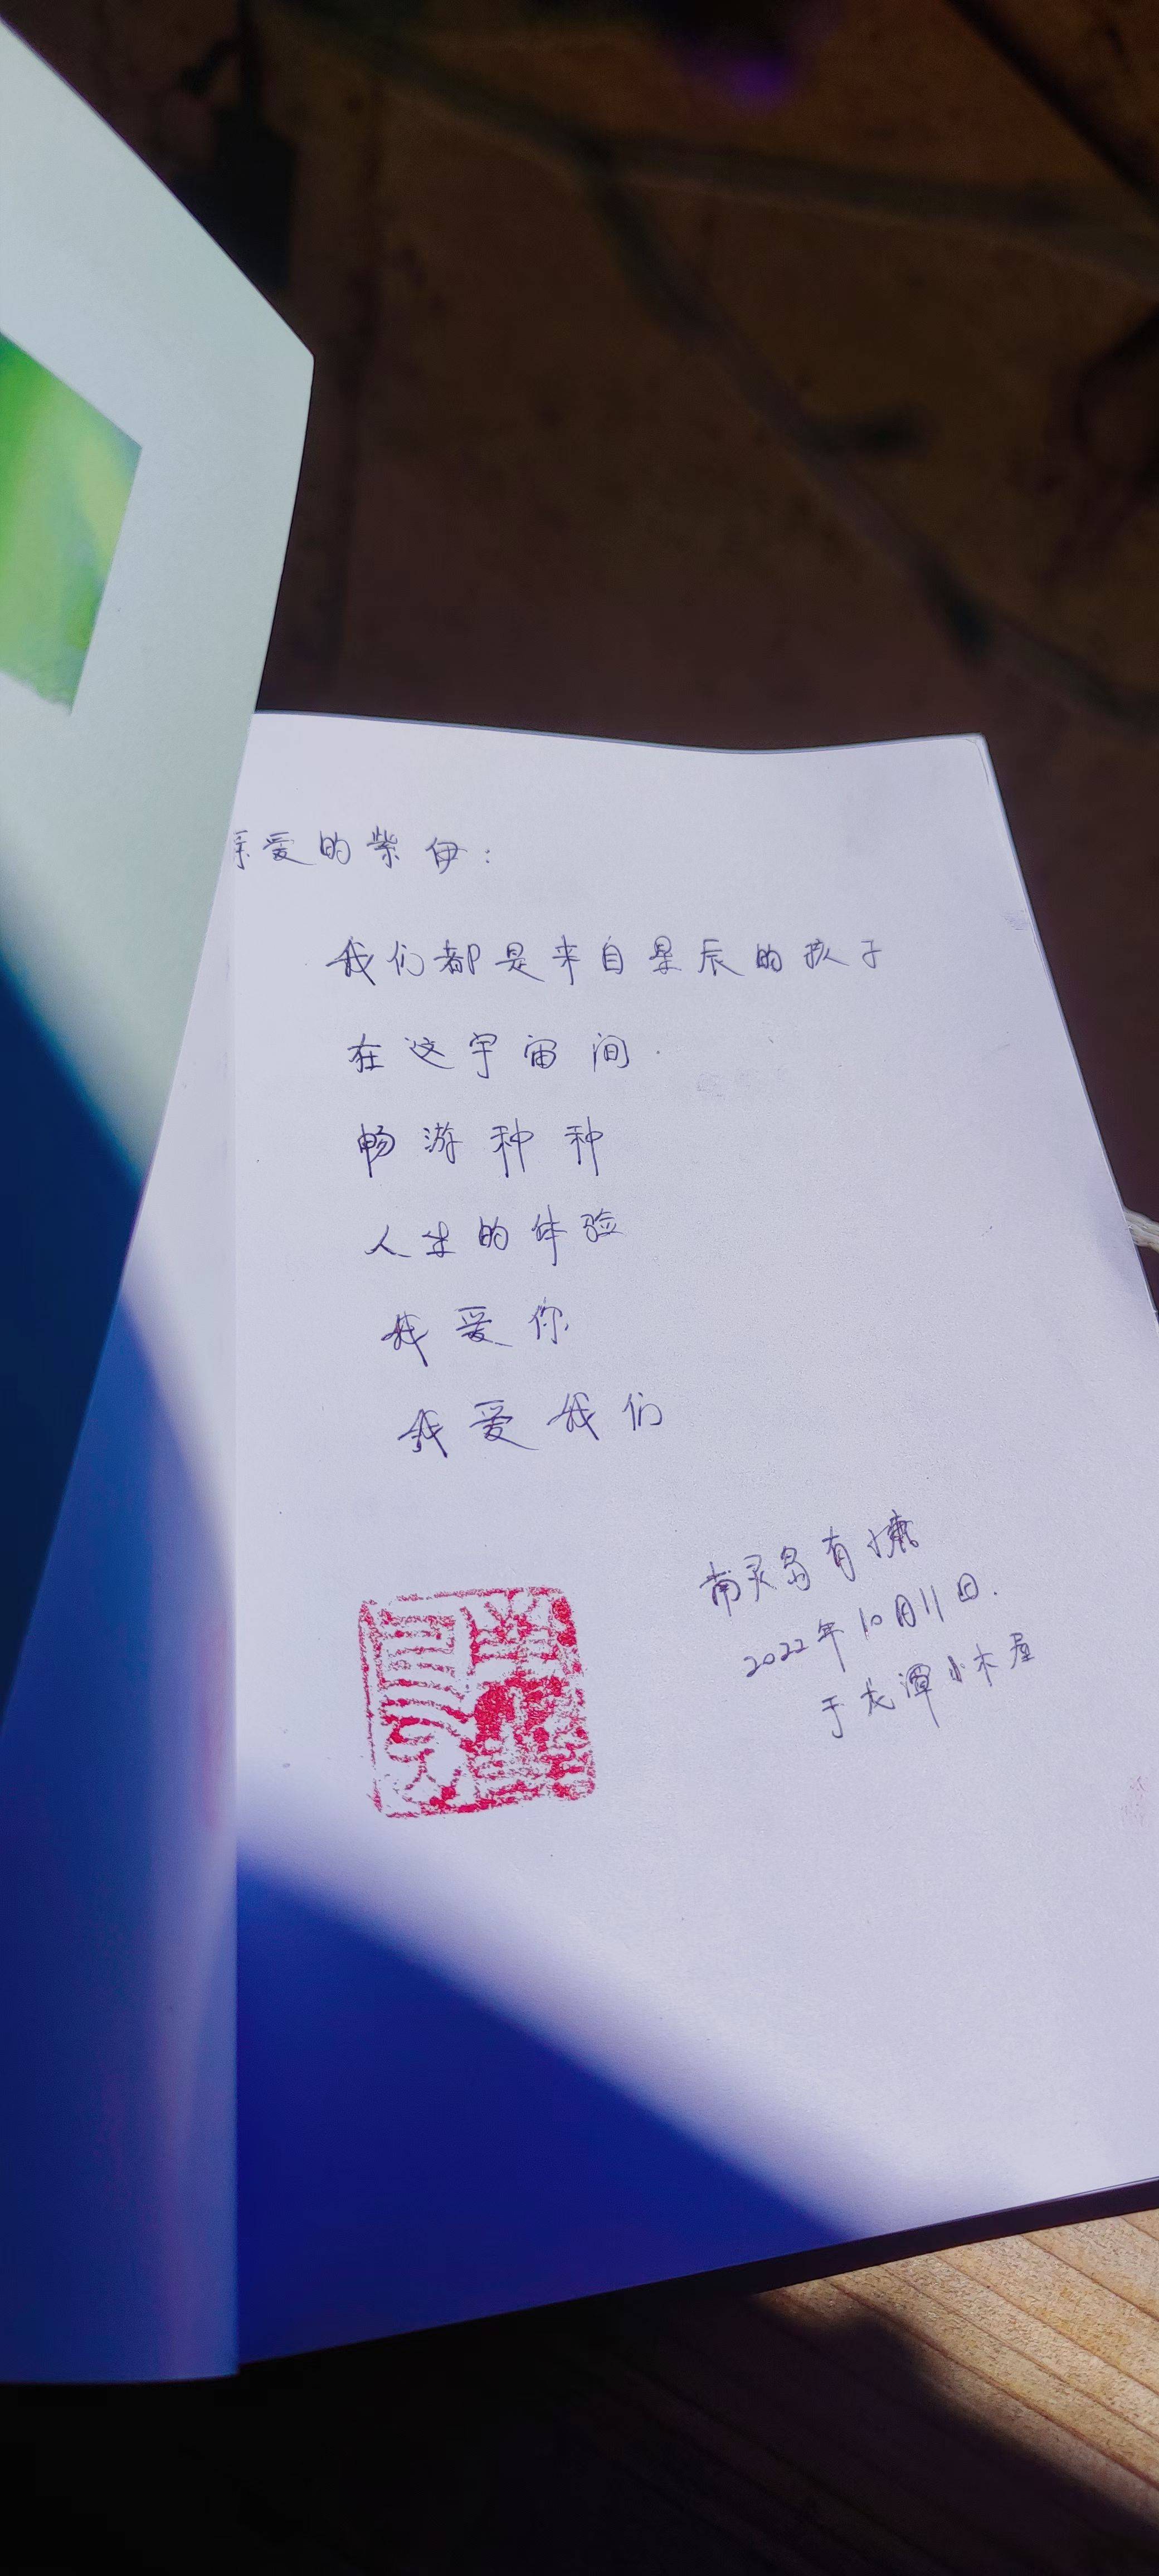 亲爱的紫伊：
我们都是来自星辰的孩子
在这宇宙间.
畅游种种
人生的体验
我爱你
我爱我们
南灵岛有慷
2022年10月11日.
于龙潭小木屋